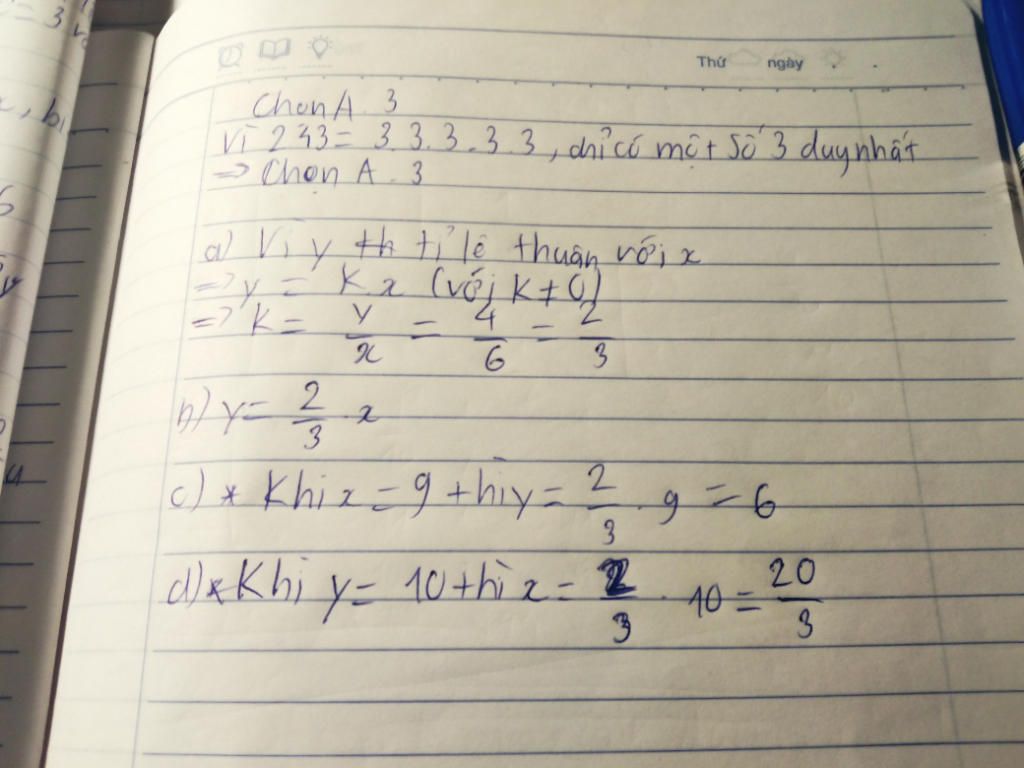 Thứ ngày
Chọn A. 3
Vì 243 = 3.3.3.3.3, chỉ có một số 3 duy nhất
=> Chọn A. 3
a) Vì y th tỉ lê thuận với x
=> y = Kx (với K ≠ 0)
=> K = y/x = 4/6 = 2/3
b) y = 2/3 . x
c) * Khi x = 9 thì y = 2/3 . 9 = 6
d) * Khi y = 10 thì x = 2/3 . 10 = 20/3